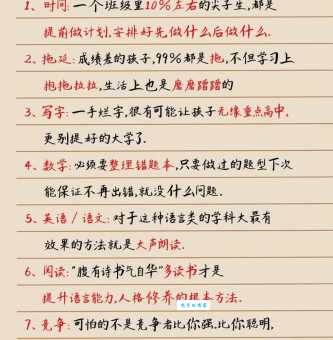 1、时间:一个班级里10%左右的尖子生,都是
提前做计划,安排好先做什么后做什么.
2、拖延:成绩差的孩子,99%都是拖,不但学习上
拖拖拉拉,生活上也是磨磨蹭蹭的
3、写字:一手烂字,很有可能让孩子无缘重点高中,
更别提好的大学了.
4、数学:必须要整理错题本,只要做过的题型下次
能保证不再出错,就没什么问题.
5、英语/语文:对于这种语言类的学科大最有
效果的方法就是大声朗读.
6、阅读:"腹有诗书气自华"多读书才是
提升语言能力,人格修养的根本方法.
7、竞争:可怕的不是竞争者比你强,比你聪明,